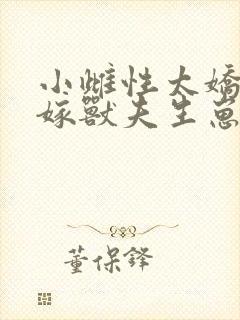 小雌性太嬌
嫁獸夫生崽
董保鋒